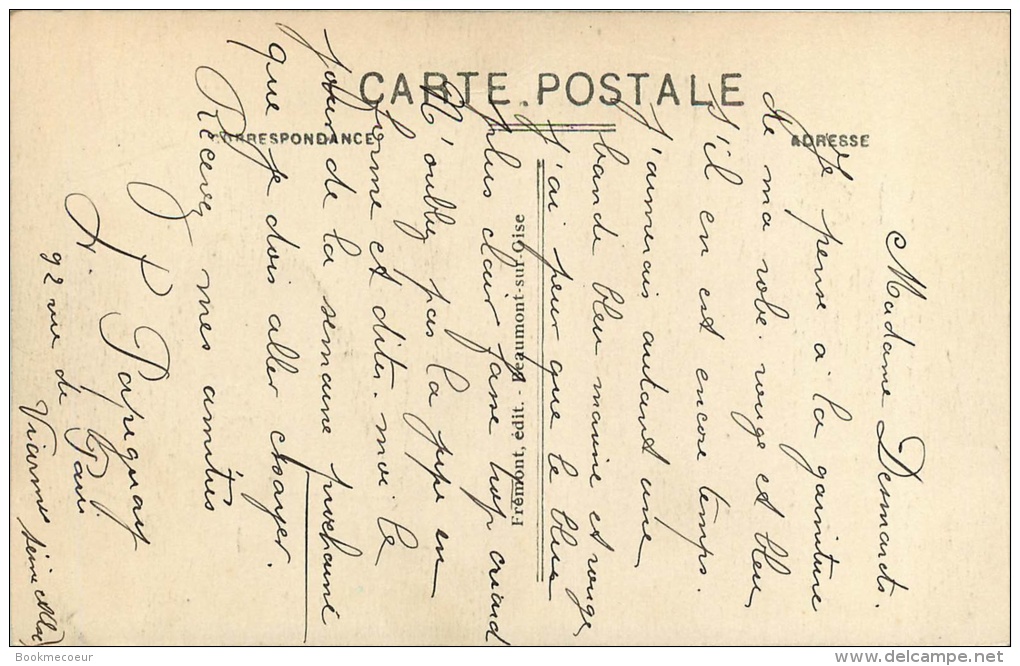 CARTE POSTALE
CORRESPONDANCE
ADRESSE
Frémont, édit. - Beaumont-sur-Oise
Madame Desmarets.
Je pense à la garniture
de ma robe rouge et bleu,
s'il en est encore temps.
J'aimerais autant une
bande bleu marine et rouge,
J'ai peur que le bleu
plus clair fasse trop criard
N'oubliez pas la jupe en
forme et dites-moi le
jour de la semaine prochaine
que je dois aller essayer.
Recevez mes amitiés
92 rue de Paris
Viarmes Seine et Oise
Bookmecoeur
www.delcampe.net